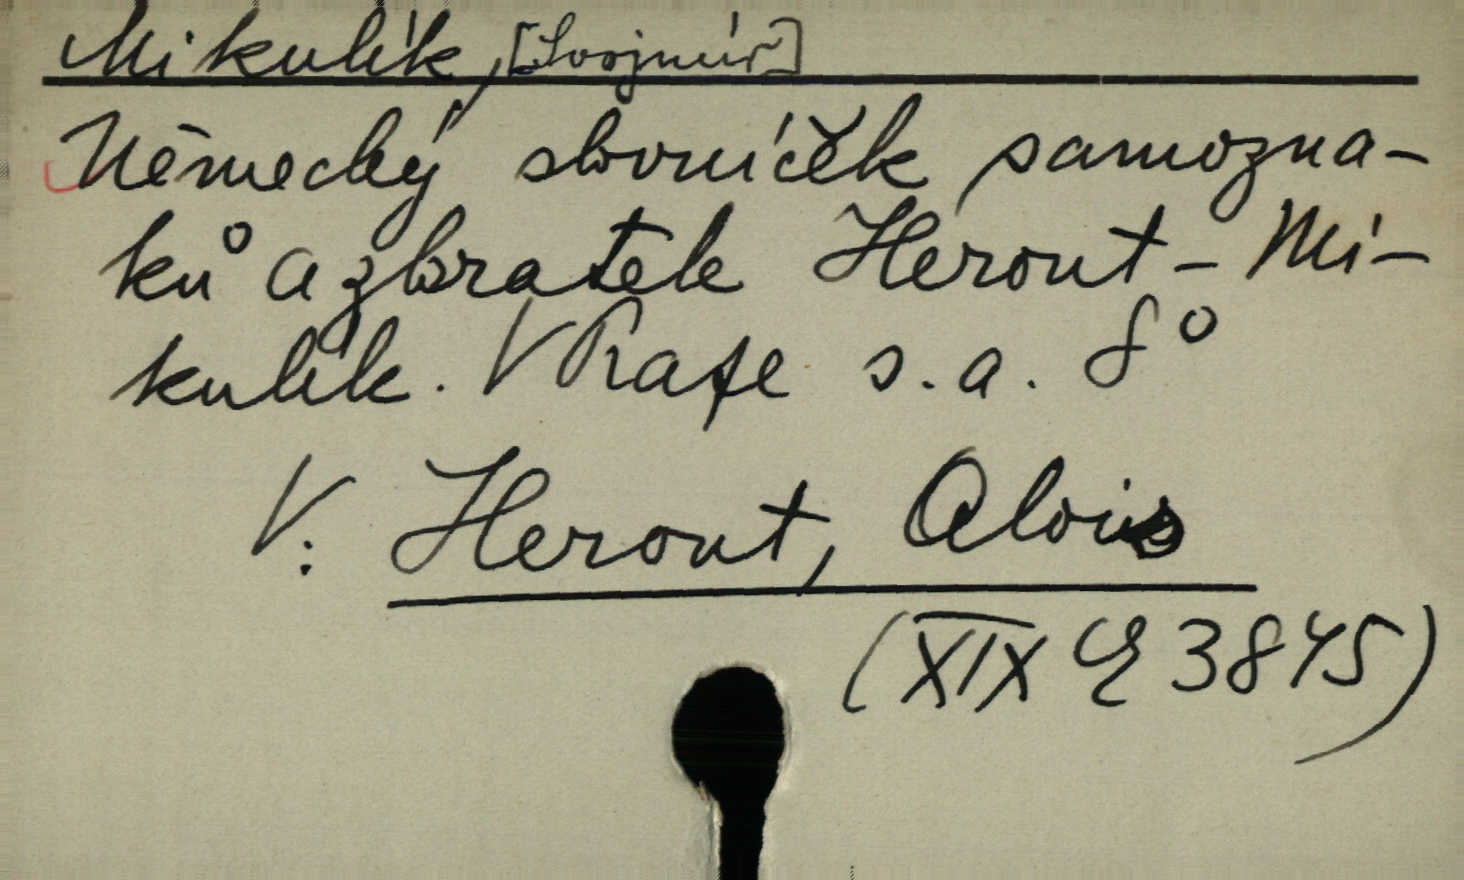 Mikulík, [Svojmír]
Německý slovníček samozna-
ků a zkratek Herout-Mi-
kulík. V Praze s.a. 8°
V: Herout, Alois
(XIX E 3845)